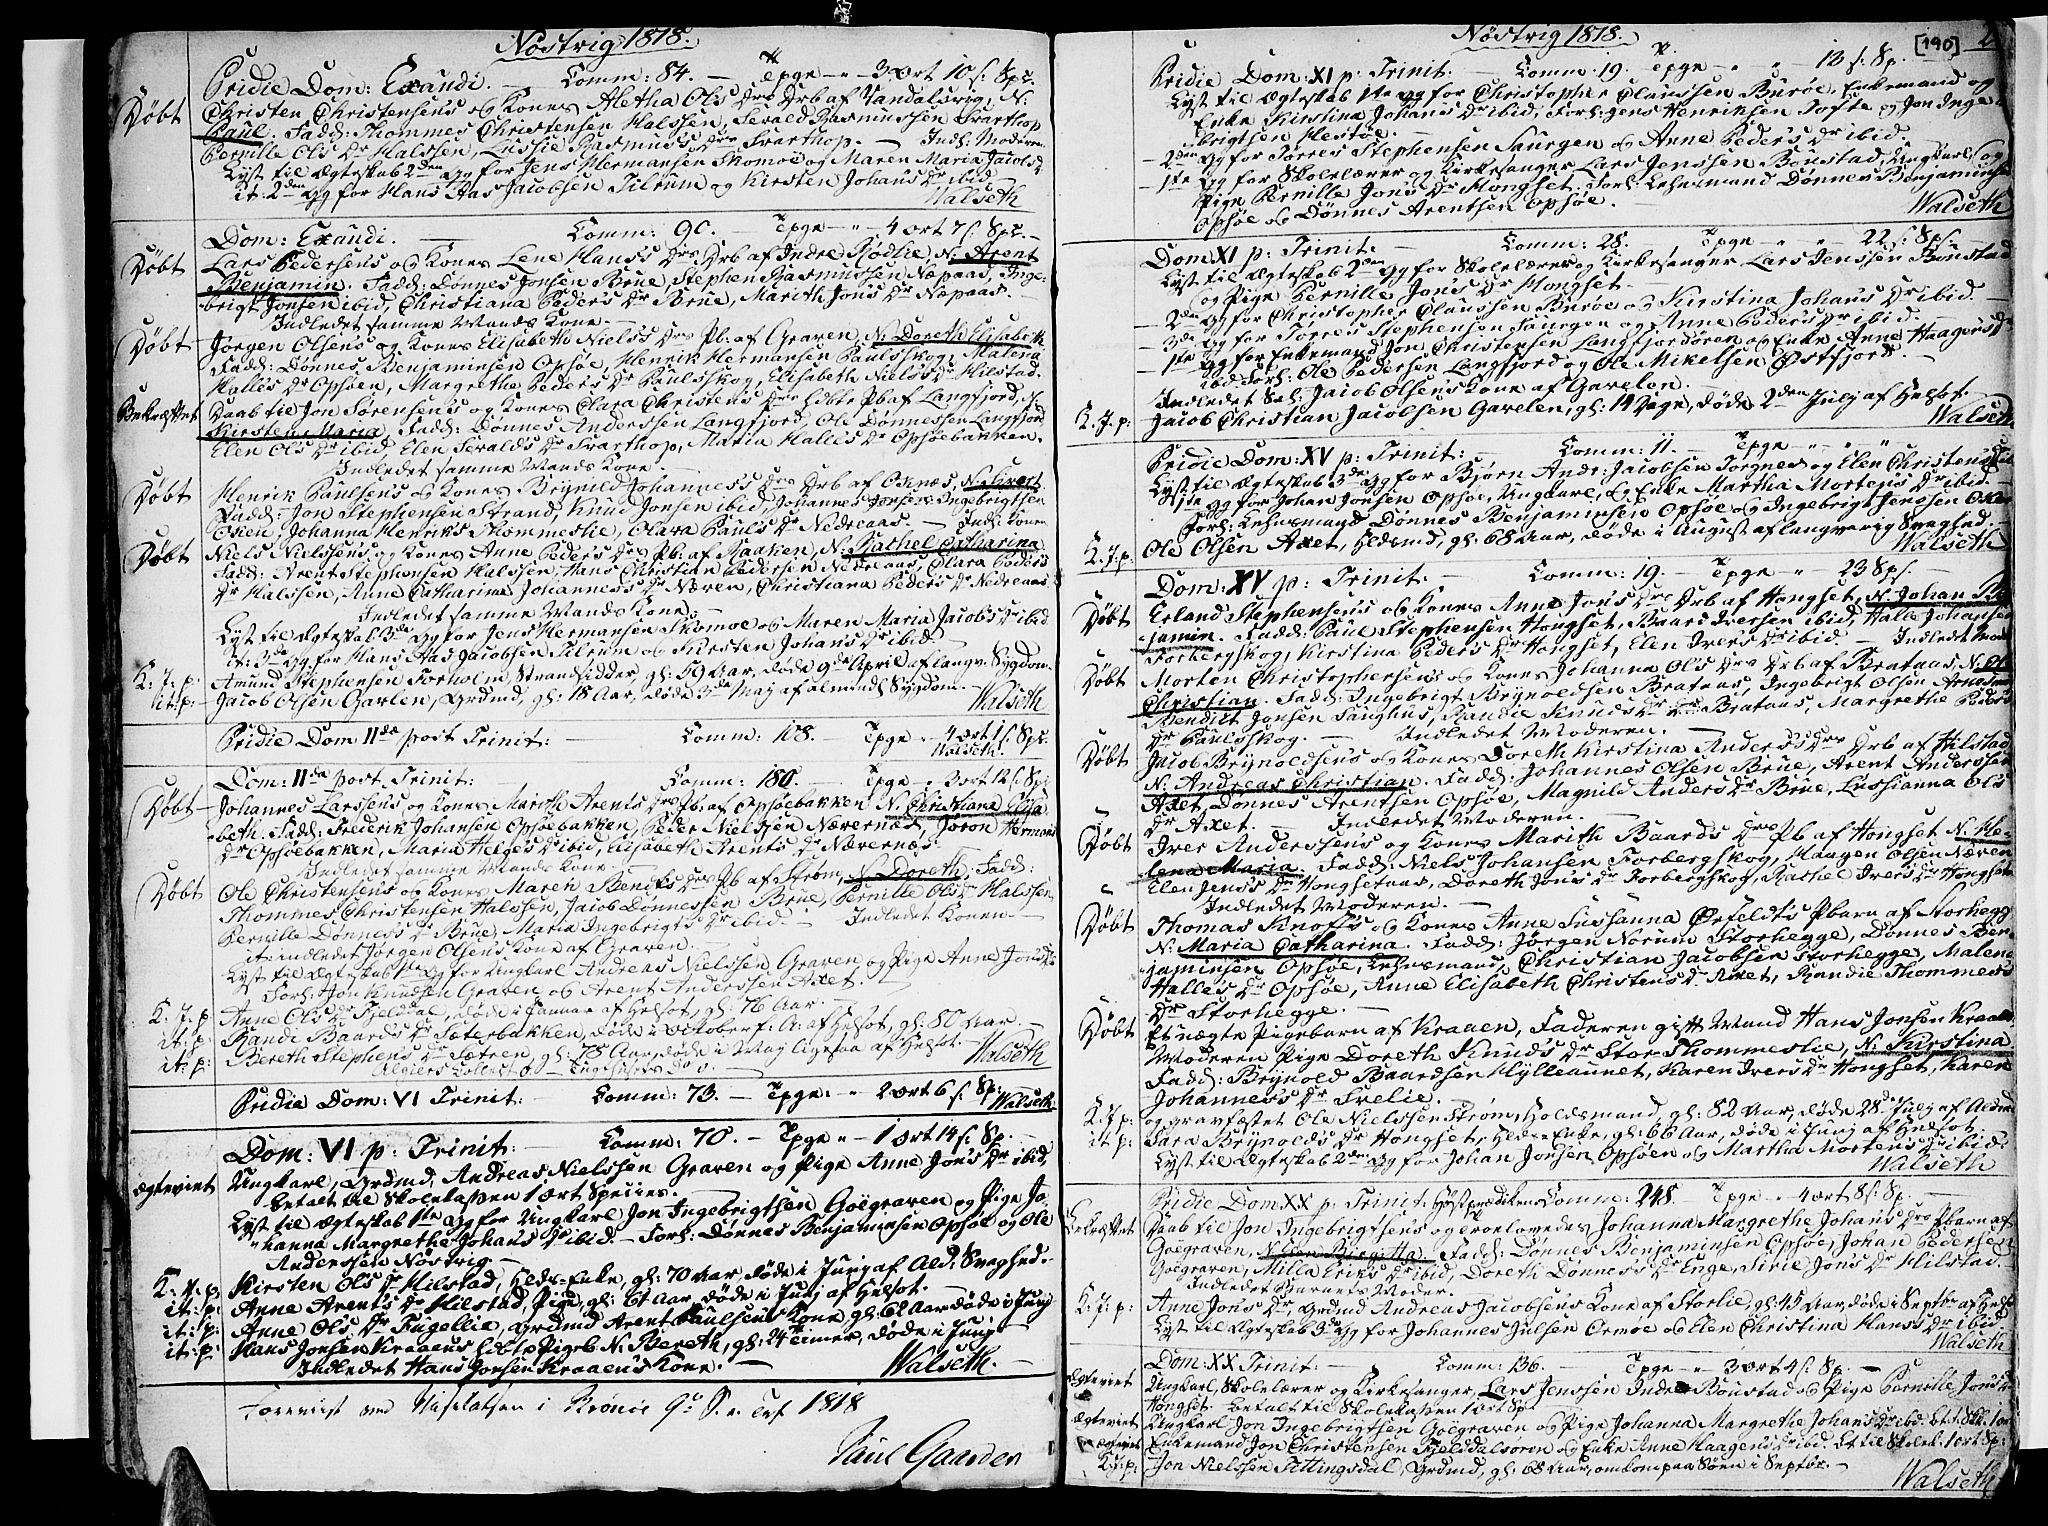 Nøstvig 1818.
Pridie Dom: Exaudi. — Comm: 84. — Tpge " 3 ort 10 s: Spc.
Døbt Christen Christensens og Kones Aletha Ols Drs Drb af Vandalsvig, N:
Paul. Fadd: Thommes Christensen Halssen, Serald Rasmussen Svarthop
Pernille Ols Dr Halssen, Lussie Rasmus's Dr Svarthop. — Indl: Moderen
Lyst til Ægteskab 2den Gg for Jens Hermansen Skomoe og Maren Maria Jacobs Dr
it: 2den Gg for Hans Aas Jacobsen Tilrum og Kirsten Johans Dr ibid
Walseth
Dom: Exaudi. — Comm: 90. — Tpge " 4 ort 7 s: Spc.
Døbt Lars Pedersens og Kones Lene Hans's Drs Drb af Indre Rødlie, N: Arent
Benjamin. Fadd: Dønnes Jonsen Brue, Stephen Rasmussen Næpaas, Inge-
brigt Jonsen ibid, Christiana Peders Dr Brue, Marith Jons Dr Næpaas.
Indledet samme Mands Kone —
Døbt Jørgen Olsens og Kones Elisabeth Niels's Drs Pb: af Graven, N: Doreth Elisabeth
Fadd: Dønnes Benjaminsen Opsøe, Henrik Hermansen Paulsskog, Malena
Halles Dr Opsøen, Margrethe Peders Dr Paulsskog, Elisabeth Niels's Dr Hilstad.
Bekræftet Daab til Jon Sørensens og Kones Clara Christens Drs Pb af Langfjord, N:
Kirsten Maria. Fadd: Dønnes Anderssen Langfjord, Ole Dønnessen Langfjord
Elen Ols Dr ibid, Elen Seralds Dr Svarthop, Maria Halles Dr Opsøebakken.
Indledet samme Mands Kone. —
Døbt Henrik Paulsens og Kones Brynild Johannes's Drs Drb af Oxnæs, N: Sivert
Fadd: Jon Stephensen Strand, Knud Jonsen ibid, Johannes Ingebrigtsen
Oxien, Johanna Henriks Thommeslie, Clara Pauls Dr Nedreaas. — Indl: Konen
Døbt Niels Nielssens og Kones Anne Peders Drs Pb: af Raaken, N: Rachel Catharina
Fadd: Arent Stephensen Halssen, Hans Christian Pedersen Nedreaas, Clara Peders
Dr Halssen, Anne Catharina Johannes's Dr Næren, Christiana Peders Dr Nedreaas
Indledet samme Mands Kone. —
Lyst til Ægteskab 3die Gg for Jens Hermansen Skomoe og Maren Maria Jacobs Dr ibid
it: 3die Gg for Hans Aas Jacobsen Tilrum og Kirsten Johans Dr ibid
K: J: p: Amund Stephensen Forholm, Strandsidder, gl: 59 Aar, døde 9de April af langv: Sygdom
it: p: Jacob Olsen Gavlen, Grdmd, gl: 18 Aar, døde 3die Maj af almindl: Sygdom. — Walseth
Pridie Dom 11da post Trinit: Comm: 108. — Tpge " 4 ort 1 s: Spc.
Walseth
Dom: 11da post Trinit: Comm: 180. — Tpge " 3 ort 12 s: Sp:
Døbt Johannes Larssens og Kones Marith Arents Drs Pb: af Opsøebakken N: Christiana Elisa
beth. Fadd: Frederik Johansen Opsøebakken, Peder Nielssen Nærernæs, Jøron Hermans
Dr Opsøebakken, Maria Helges Dr ibid, Elisabeth Arents Dr Nærernæs.
Indledet samme Mands Kone —
Døbt Ole Christensens og Kones Maren Bendts Drs Pb af Strøm, N: Doreth. Fadd:
Thommes Christensen Halssen, Jacob Dønnessen Brue, Pernille Ols Dr Halssen
Pernille Dønnes's Dr Brue, Maria Ingebrigts Dr ibid. — Indledet Konen —
it: indledet Jørgen Olsens Kone af Graven. —
Lyst til Ægteskab 1ste Gg for Ungkarl Andreas Nielssen Graven og Pige Anne Jons Dr
Forl: Jon Knudsen Graven og Arent Anderssen Axet. —
K: J: p: Anne Ols Dr Fjeldal, døde i Januar af Helsot, gl: 76 Aar. —
it: p: Randi Baards Dr Sæterbakken, døde i October f: A: af Helsot, gl: 80 Aar. —
it: p: Bereth Stephens Dr Sætren, gl: 78 Aar, døde i Maj ligesaa af Helsot. — Walseth
Pridie Dom: VI Trinit: — Comm: 73. — Tpge: " 2 ort 6 s: Sp: Walseth
Dom: VI p: Trinit: — Comm: 70. — Tpge " 1 ort 14 s: Sp. —
Ægteviet Ungkarl, Grdmd, Andreas Nielssen Graven og Pige Anne Jons Dr ibid,
betalt til Skolekassen 1 ort Species. —
Lyst til Ægteskab 1ste Gg for Ungkarl Jon Ingebrigtsen Goëgraven og Pige Jo-
hanna Margrethe Johans Dr ibid. — Forl: Dønnes Benjaminsen Opsøe og Ole
Anderssen Nøstvig. —
K: J: p: Kirsten Ols Dr Hilstad, Hlds-Enke, gl: 70 Aar, døde i Junj af Ald: Svaghed. —
it: p: Anne Arents Dr Hilstad, Pige, gl: 61 Aar, døde i Junj af Helsot. —
it: p: Anne Ols Dr Fugellie, Grdmd Arent Paulsens Kone, gl: 62 Aar døde i Junj
it: p: Hans Jonsen Kraaens Pigeb: N: Bereth, gl: 24 Timer, døde i Junj
Indledet Hans Jonsen Kraaens Kone. — Walseth. —
Foreviist ved Visitatsen i Brønøe 1818
Paul Gaarder
Nøstvig 1818. [190]
Pridie Dom: XI p: Trinit: — Comm: 19. — Tpge " " 12 s: Sp.
Lyst til Ægteskab 1ste Gg for Christopher Claussen Burøe, Enkemand og
Enke Kirstina Johans Dr ibid, Forl: Jens Henriksen Tofte og Jon Inge-
brigtsen Hestøe. —
2den Gg for Torres Stephensen Saurgen og Anne Peders Dr ibid. —
1ste Gg for Skolelærer og Kirkesanger Lars Jenssen Boustad, Ungkarl, og
Pige Pernille Jons Dr Hongset. Forl: Lehnsmand Dønnes Benjaminsen
Opsøe og Dønnes Arentsen Opsøe. — Walseth
Dom XI p: Trinit: — Comm: 28. — Tpge " " 22 s: Sp. —
Lyst til Ægteskab 2den Gg for Skolelærer og Kirkesanger Lars Jenssen Boustad
og Pige Pernille Jons Dr Hongset. —
2den Gg for Christopher Claussen Burøe og Kirstina Johans Dr ibid. —
3die Gg for Torres Stephensen Saurgen og Anne Peders Dr ibid. —
1ste Gg for Enkemand Jon Christensen Langfjordøren og Enke Anne Haagens Dr
ibid Forl: Ole Pedersen Langfjord og Ole Mikelsen Østfjord. —
Indledet Sal: Jacob Olsens Kone af Gavelen. —
K: J: p: Jacob Christian Jacobsen Gavelen, gl: 14 Dage, døde 2den Julj af Helsot.
Walseth
Pridie Dom: XV p: Trinit: — Comm: 11. — Tpge " " "
Lyst til Ægteskab 3die Gg for Bjørn Andr: Jacobsen Torgnes og Elen Christens Dr
1ste Gg for Johan Jonsen Opsøe, Ungkarl, og Enke Martha Mortens Dr ibid. —
Forl: Lehnsmand Dønnes Benjaminsen Opsøe og Ingebrigt Jenssen Oxien
K: J: p: Ole Olsen Axet, Hldsmd, gl: 68 Aar, døde i August af langvarig Svaghed. —
Walseth
Dom: XV p: Trinit: — Comm: 19. — Tpge " 23 Sps. —
Døbt Erland Stephensens og Kones Anne Jons Drs Drb af Hongset, N: Johan Ben
jamin. Fadd: Paul Stephensen Hongset, Baar Iversen ibid, Halle Johansen
Torbergskog, Kirstina Peders Dr Hongset, Elen Ivers Dr ibid — Indledet Mod:
Døbt Morten Christophersens og Kones Johanna Ols Drs Drb af Brataas, N: Ole
Christian. Fadd: Ingebrigt Brynoldsen Brataas, Ingebrigt Olsen
Bendict Jonsen Sanghus, Randie Knuds Dr Brataas, Margrethe Peders
Dr Paulsskog. — Indledet Moderen. —
Døbt Jacob Brynoldsens og Kones Doreth Kirstina Anders's Drs Drb af Hilstad
N: Andreas Christian. Fadd: Johannes Olsen Brue, Arent Anderssen
Axet, Dønnes Arentsen Opsøe, Magnild Anders Dr Brue, Lussianna Ols
Dr Axet. — Indledet Moderen. —
Døbt Iver Anderssens og Kones Marith Baards Drs Pb af Hongset N: He-
lena Maria. Fadd: Niels Johansen Torbergskog, Haagen Olsen Næren
Elen Jens's Dr Hongsetaas, Doreth Jons Dr Torbergskog, Rachel Ivers Dr Hongset
Indledet Moderen. —
Døbt Thomas Knoffs og Kones Anne Susanna Øefeldts Pbarn af Storhegge
N: Maria Catharina. Fadd: Jørgen Norum Storhegge, Dønnes Ben-
jaminsen Opsøe, Lehnsmand, Christian Jacobsen Storhegge, Malene
Halles Dr Opsøe, Anne Elisabeth Christens Dr Axet, Randie Thommes's
Dr Storhegge. —
Døbt Et uægte Pigebarn af Kraaen, Faderen gift Mand Hans Jonsen Kraaen
Moderen Pige Doreth Knuds Dr Stor-Thommeslie, N: Kirstina.
Fadd: Brynold Baardsen Hylleaunet, Karen Ivers Dr Hongset, Karen
Johannes's Dr Trelie. —
K: J: p: og gravfæstet Ole Nielssen Strøm, Holdsmand, gl: 82 Aar, døde 28de Julj af Alderd:
it: p: Sara Brynolds Dr Hongset, Hlds-Enke, gl: 66 Aar, døde i Junj af Helsot. —
Lyst til Ægteskab 2den Gg for Johan Jonsen Opsøen og Martha Mortens Dr ibid.
Walseth
Pridie Dom XX p: Trinit: Høstprædiken Comm: 248. Tpge " 4 ort 8 s: Sp. —
Bekræftet Daab til Jon Ingebrigtsens og Trolovedes Johanna Margrethe Johans Drs Pbarn af
Goëgraven, N: Elen Birgitta. Fadd: Dønnes Benjaminsen Opsøe, Johan Pedersen
Goëgraven, Milla Eriks Dr ibid, Doreth Dønnes's Dr Enge, Sirie Jons Dr Hilstad.
Indledet Barnets Moder. —
K: J: p: Anne Jons Dr, Grdmd Andreas Jacobsens Kone af Storlie, gl: 45 Aar, døde i Septbr af Helsot
Lyst til Ægteskab 3die Gg for Johannes Julsen Ormøe og Elen Christina Hans's Dr ibid
Walseth
Dom: XX Trinit: Comm: 136. — Tpge " 3 ort 4 s: Sp. —
Ægteviet Ungkarl, Skolelærer og Kirkesanger, Lars Jenssen Indre Boustad og Pige Pernille Jons Dr
Hongset. Betalt til Skolekassen 1 ort Sp.
Ægteviet Ungkarl Jon Ingebrigtsen Goëgraven og Pige Johanna Margrethe Johans Dr ibid. bt. t. Skk. 1 ort
Ægteviet Enkemand Jon Christensen Fjelddalsøren og Enke Anne Haagens Dr ibid. bt til Skolek: 1 ort Sp:
K: J: p: Jon Nielssen Tettingsdal, Grdmd, gl: 68 Aar, omkom paa Søen i Septbr. —
Walseth